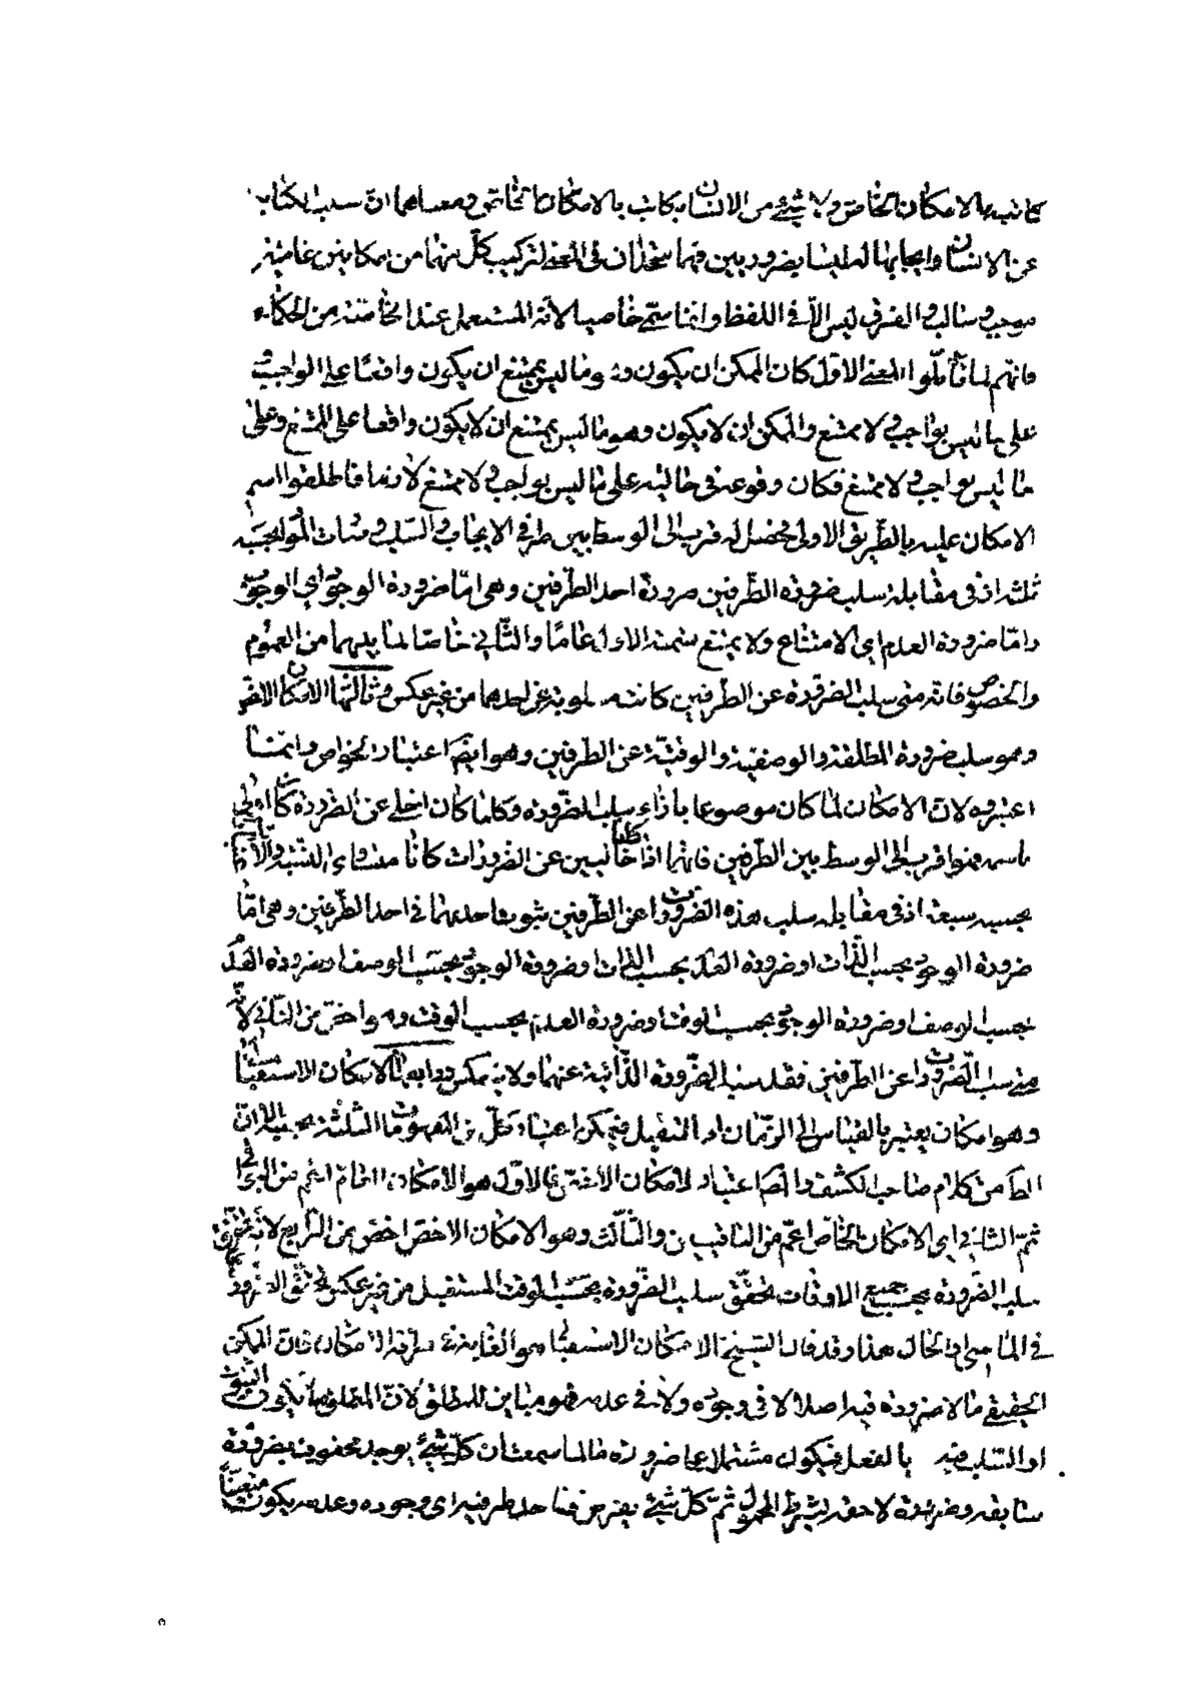 كاتب بالامكان الخاص ولا شيئ من الانسان بكاتب بالامكان الخاص ومعناهما ان سلب الكتابة
عن الانسان وايجابها له ليسا بضروريين فهما متحدان فى المعنى لتركيب كل منهما من امكانين عامين
موجب وسالب والفرق ليس الا فى اللفظ وانما سمى خاصيا لانه المستعمل عند الخاصة من الحكماء
فانهم لما تأملوا المعنى الاول كان الممكن ان يكون وهو ما ليس بممتنع ان يكون واقعا على الواجب و
على ما ليس بواجب ولا ممتنع والممكن ان لا يكون وهو ما ليس بممتنع ان لا يكون واقعا على الممتنع وعلى
ما ليس بواجب ولا ممتنع فكان وقوعه فى حاليه على ما ليس بواجب ولا ممتنع لازما فاطلقوا اسم
الامكان عليه بالطريق الاولى فحصل له قرب الى الوسط بين طرفى الايجاب والسلب وصارت المواد بحسبه
ثلثة اذ فى مقابلة سلب ضرورة الطرفين ضرورة احد الطرفين وهى اما ضرورة الوجود اى الوجوب
واما ضرورة العدم اى الامتناع ولا يمتنع تسمية الاول عاما والثانى خاصا لما بينهما من العموم
والخصوص فانه متى سلب الضرورة عن الطرفين كانت مسلوبة عن احدهما من غير عكس وثالثها الامكان الاخص
وهو سلب ضرورة المطلقة والوصفية والوقتية عن الطرفين وهو ايضا اعتبار الخواص وانما
اعتبروه لان الامكان لما كان موضوعا بازاء سلب الضرورة وكلما كان اخلى عن الضرورة كان اولى
باسمه فهو اقرب الى الوسط بين الطرفين فانهما اذا كانا خاليين عن الضرورات كانا متساوى النسبة والاعتبارات
بحسبه سبعة اذ فى مقابلة سلب هذه الضرورات عن الطرفين ثبوت احديهما فى احد الطرفين وهى اما
ضرورة الوجود بحسب الذات او ضرورة العدم بحسب الذات او ضرورة الوجود بحسب الوصف او ضرورة العدم
بحسب الوصف او ضرورة الوجود بحسب الوقت او ضرورة العدم بحسب الوقت وهو اخص من الثانى لانه
متى سلب الضرورات عن الطرفين فقد سلب الضرورة الذاتية عنهما ولا ينعكس ورابعها الامكان الاستقبالى
وهو امكان يعتبر بالقياس الى الزمان المستقبل فيمكن اعتبار كل من المفهومات الثلثة بحسبه لان
الظاهر من كلام صاحب الكشف والمصنف اعتبار الامكان الاخص فالاول هو الامكان العام اعم من البواقى
ثم الثانى اى الامكان الخاص اعم من الباقيين والثالث وهو الامكان الاخص اخص من الرابع لانه متى تحقق
سلب الضرورة بحسب جميع الاوقات تحقق سلب الضرورة بحسب الوقت المستقبل من غير عكس لجواز تحقق الضرورة
فى الماضى والحال هذا وقد قال الشيخ الامكان الاستقبالى هو الغاية فى صرافة الامكان فان الممكن
الحقيقى ما لا ضرورة فيه اصلا لا فى وجوده ولا فى عدمه فهو مباين للمطلق لان المطلق ما يكون الثبوت
او السلب فيه بالفعل فيكون مشتملا على ضرورة ما لما سمعت ان كل شيئ يوجد محفوف بضرورة
سابقة وضرورة لاحقة بشرط المحمول ثم كل شيئ يفرض فاحد طرفيه اى وجوده وعدمه يكون متعينا